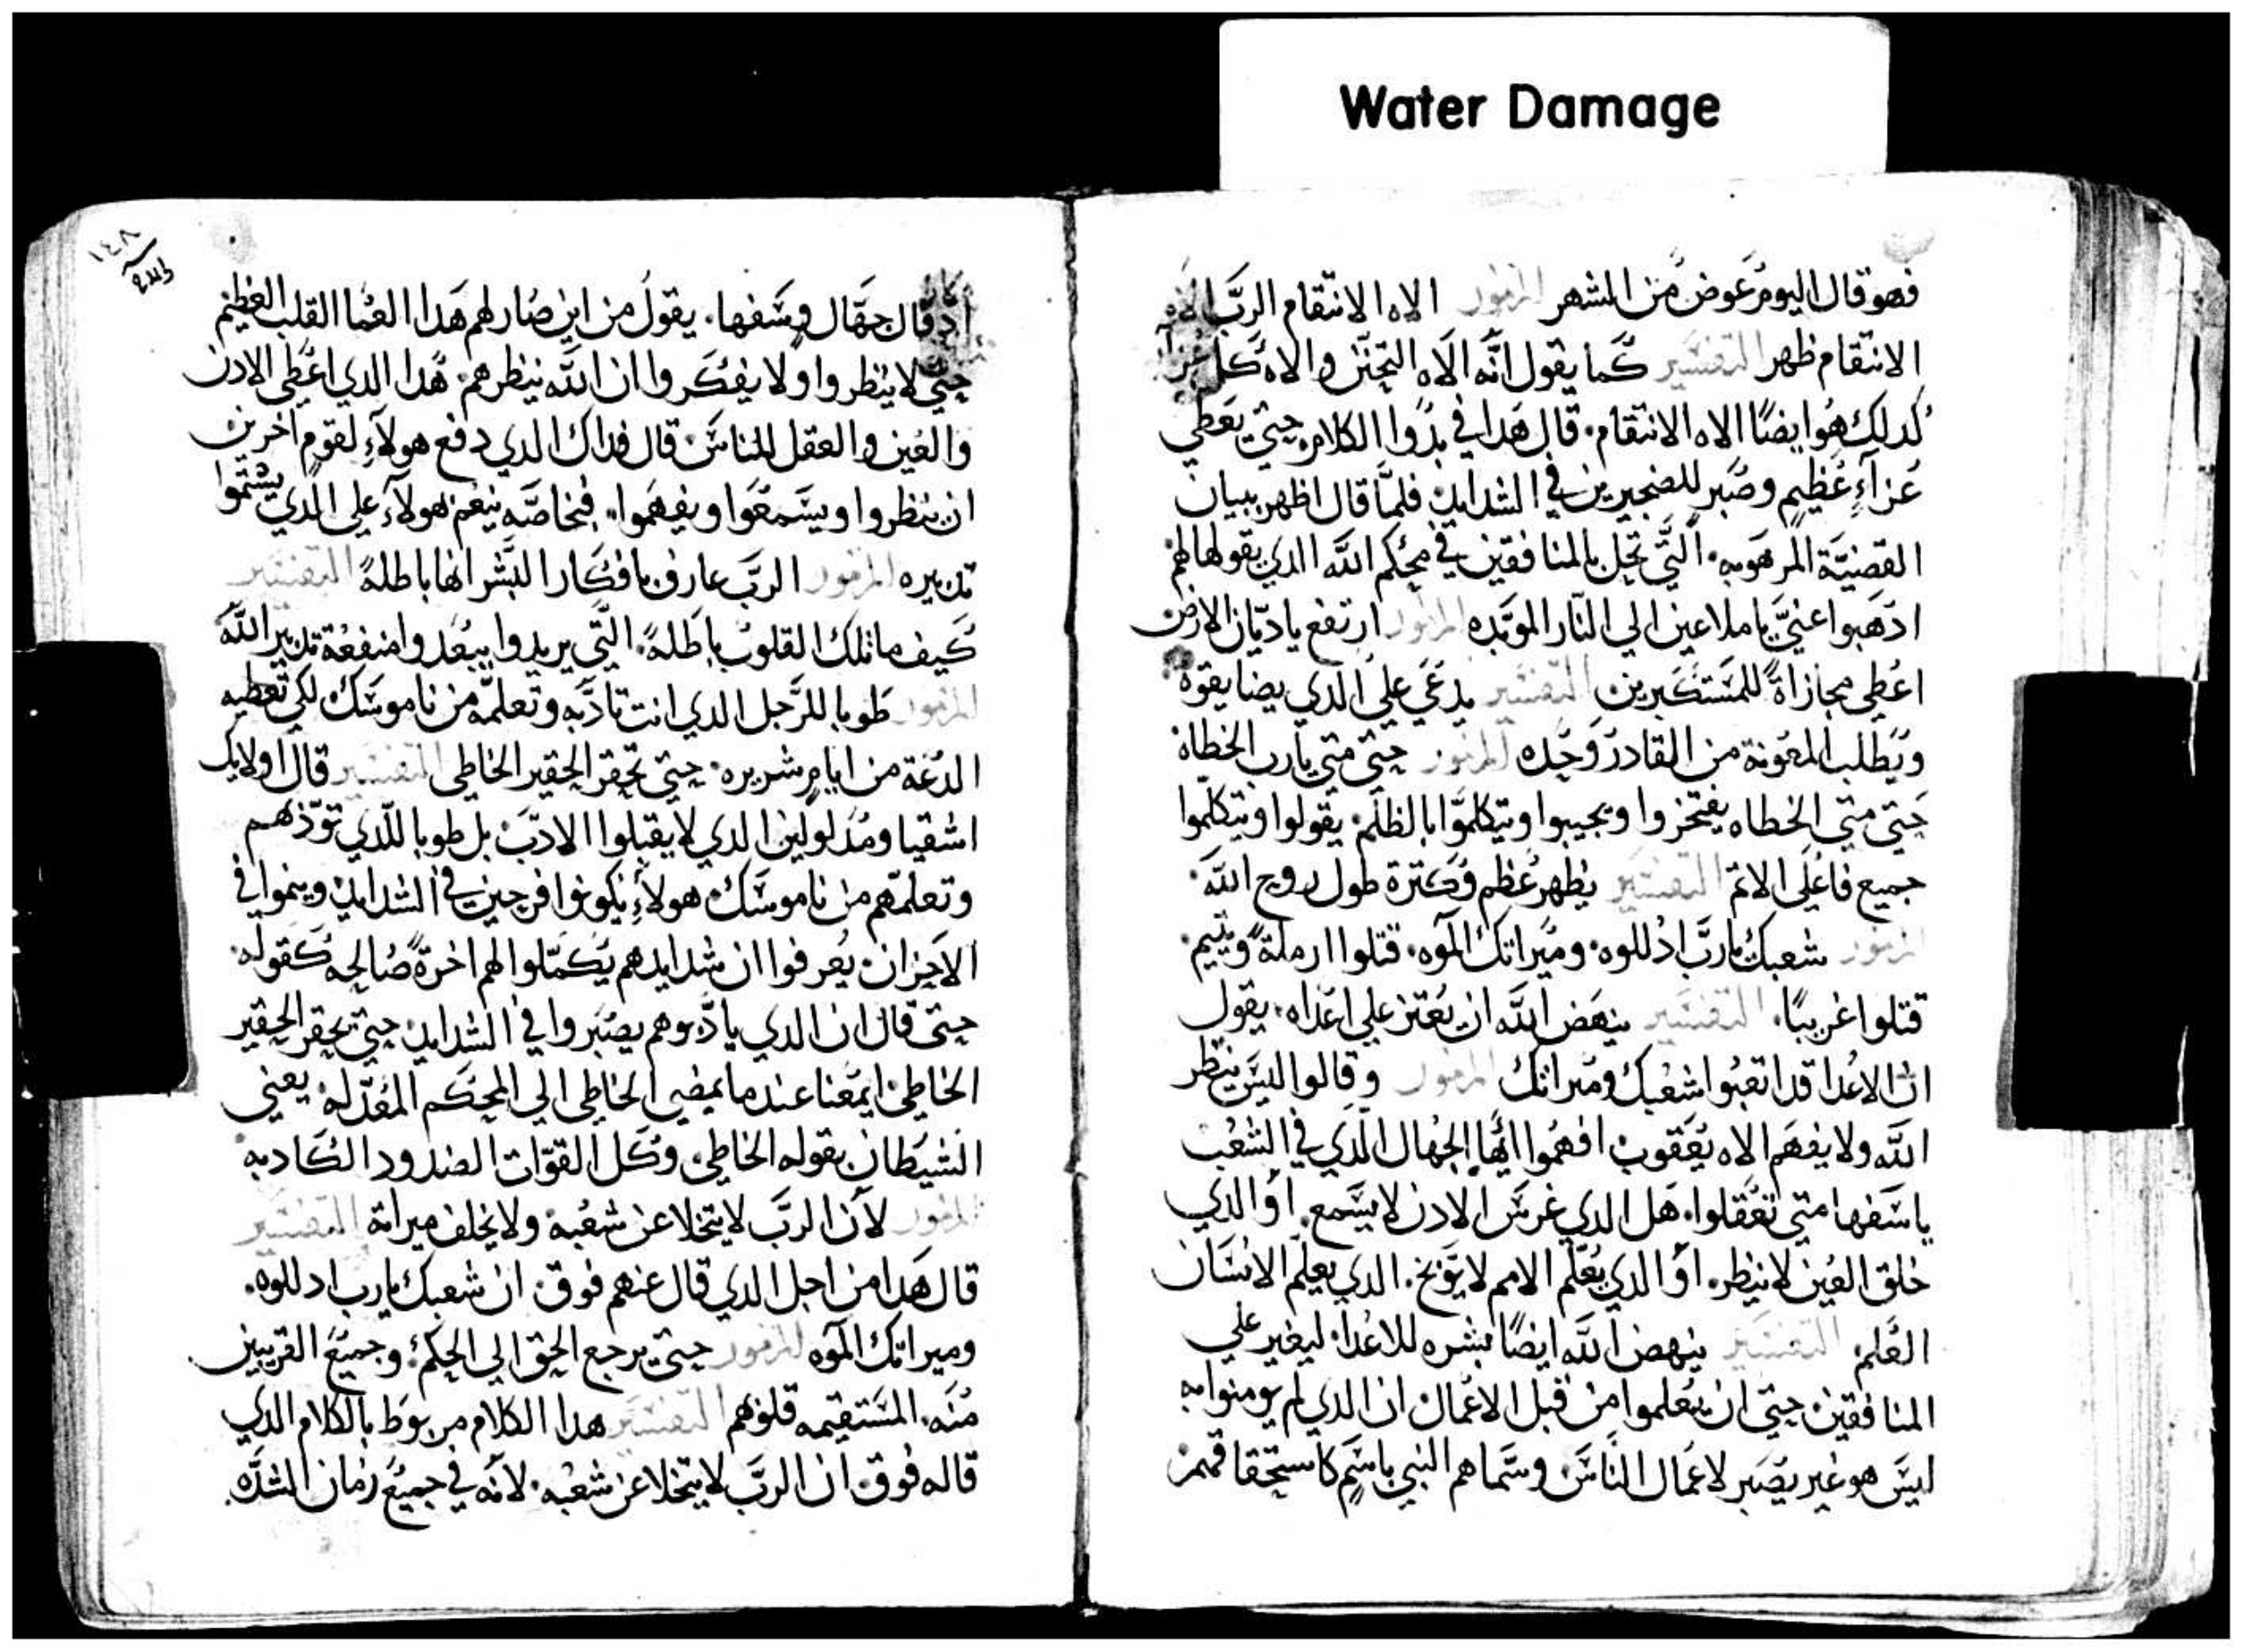 Water Damage
فهو قال اليوم عوض من الشهر المزمور الاه الانتقام الربّ الاه
الانتقام ظهر التفسير كما يقول انّه الاه التحنّن والاه كل عزآ
كدلك هو ايضًا الاه الانتقام. قال هدا في بدوا الكلام حتي يعطي
عزآءٍ عظيمٍ وصبر للضجيرين في الشدايد فلمّا قال اظهر ببيان
القضيّة المرهوبه. الّتي تحل بالمنافقين في محكم الله الدي يقولها لهم
ادهبوا عنيّ يا ملاعين الي النار الموبّده المزمور ارتفع يا ديّان الارض
اعطي مجازاة للمستكبرين التفسير يدعي علي الدي يضا بقوة
ويطلب المعونة من القادر وحده المزمور حتي متي يارب الخطاه
حتي متي الخطاه يفتخروا ويجيبوا ويتكلموا بالظلم. يقولوا ويتكلّموا
جميع فاعلي الاتم التفسير يظهر عظم وكترة طول روح الله.
المزمور شعبك يا ربّ ادللوه. وميراتك آلموه. قتلوا ارملة ويتيم.
قتلوا غريبًا. التفسير ينهض الله ان يعتز علي اعداه. يقول
ان الاعدا قد اتعبوا شعبك وميراتك المزمور وقالوا ليس ينظر
الله ولا يفهم الاه يعقوب افهموا ايّها الجهال الّدي في الشعب
يا سفها متي تعقلوا. هل الدي غرس الادن لا يسمع. او الدي
خلق العين لا ينظر. او الدي يعلّم الامم لا يوبّخ. الدي يعلّم الانسان
العلم. التفسير ينهض الله ايضًا بشره للاعدا. ليغير علي
المنافقين حتي ان يعلموا من قبل الاعمال ان الدي لم يومنوا به
ليس هو غير بصير لاعمال الناس وسمّاهم النبي باسمٍ كاستحقاقهم
١٤٨
ادقال جهّال وسفها. يقول من اين صار لهم هدا العما القلب العظيم
حتي لا ينظروا ولا يفكروا ان الله ينظرهم. هدا الدي اعطي الادن
والعين والعقل للناس. قال فداك الدي دفع هولآءِ لقومٍ اخرين
ان ينظروا ويسمعوا ويفهموا. فبخاصّه ينعم هولآء علي الدي يشتموا
تدبيره المزمور الربّ عارف بافكار البشر انها باطلة التفسير
كيف ما تلك القلوب باطلة. الّتي يريدوا يبعدوا منفعة تدبير الله
المزمور طوبا للرّجل الدي انت تادّبه وتعلمه من ناموسك لكي تعطيه
الدعة من ايامٍ شريره. حتي تحفر الحفير الخاطي التفسير قال اولايك
اشقيا ومدلولين الدي لا يقبلوا الادب بل طوبا للّدي تودّبهم
وتعلمهم من ناموسك هولاءِ يكونوا فرحين في الشدايد وينموا في
الاحزان. يعرفوا ان شدايدهم يكمّلوا لهم اخرة صالحه كقوله.
حتي قال ان الدي يادّبوهم يصبروا في الشدايد. حتي يحفر الحفير
الخاطي. ايمّعنا عند ما يمضي الخاطي الي المحكم المعدّ له. يعني
الشيطان بقوله الخاطي. وكل القوّات الضدود الكادبه
المزمور لان الربّ لا يتخلا عن شعبه ولا يخلف ميراته التفسير
قال هدا من اجل الدي قال عنهم فوق. ان شعبك يارب ادللوه.
وميراتك آلموه المزمور حتي يرجع الحق الي الحكم. وجميع القريبين
منه. المستقيمه قلوبهم التفسير هدا الكلام مربوط بالكلام الدي
قاله فوق. ان الربّ لا يتخلا عن شعبه. لانّه في جميع زمان الشدّه.